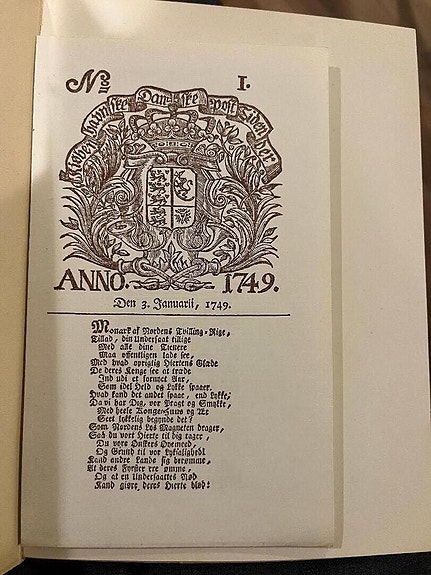 No. I.
Kiøbenhavnske Danske Post-Tidender
ANNO. 1749.
Den 3. Januarii, 1749.
Monark af Nordens Tvilling-Rige,
Tillad, din Undersaat tillige
Med alle dine Tienere
Maa offentligen lade see,
Med hvad oprigtig Hiertens Glæde
De deres Konge see at træde
Ind udi et fornyet Aar,
Som idel Held og Lykke spaaer.
Hvad kand det andet spaae, end Lykke,
Da vi har Dig, vor Pragt og Smykke,
Med heele Konge-Huus og Æt
Seet lykkelig begynde det?
Som Nordens Lys Magneten drager,
Saa du vort Hierte til dig tager,
Du vore Ønskers Øyemeed,
Og Grund til vor Lyksalighed!
Kand andre Lande sig berømme,
At deres Fyrster ere ømme,
Og at en Undersaattes Nød
Kand giøre deres Hierte blød!